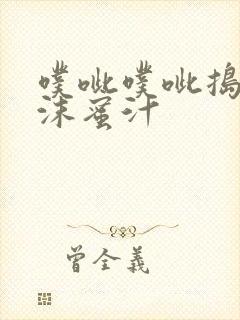 噗呲噗呲捣
沫蜜汁
曾全義